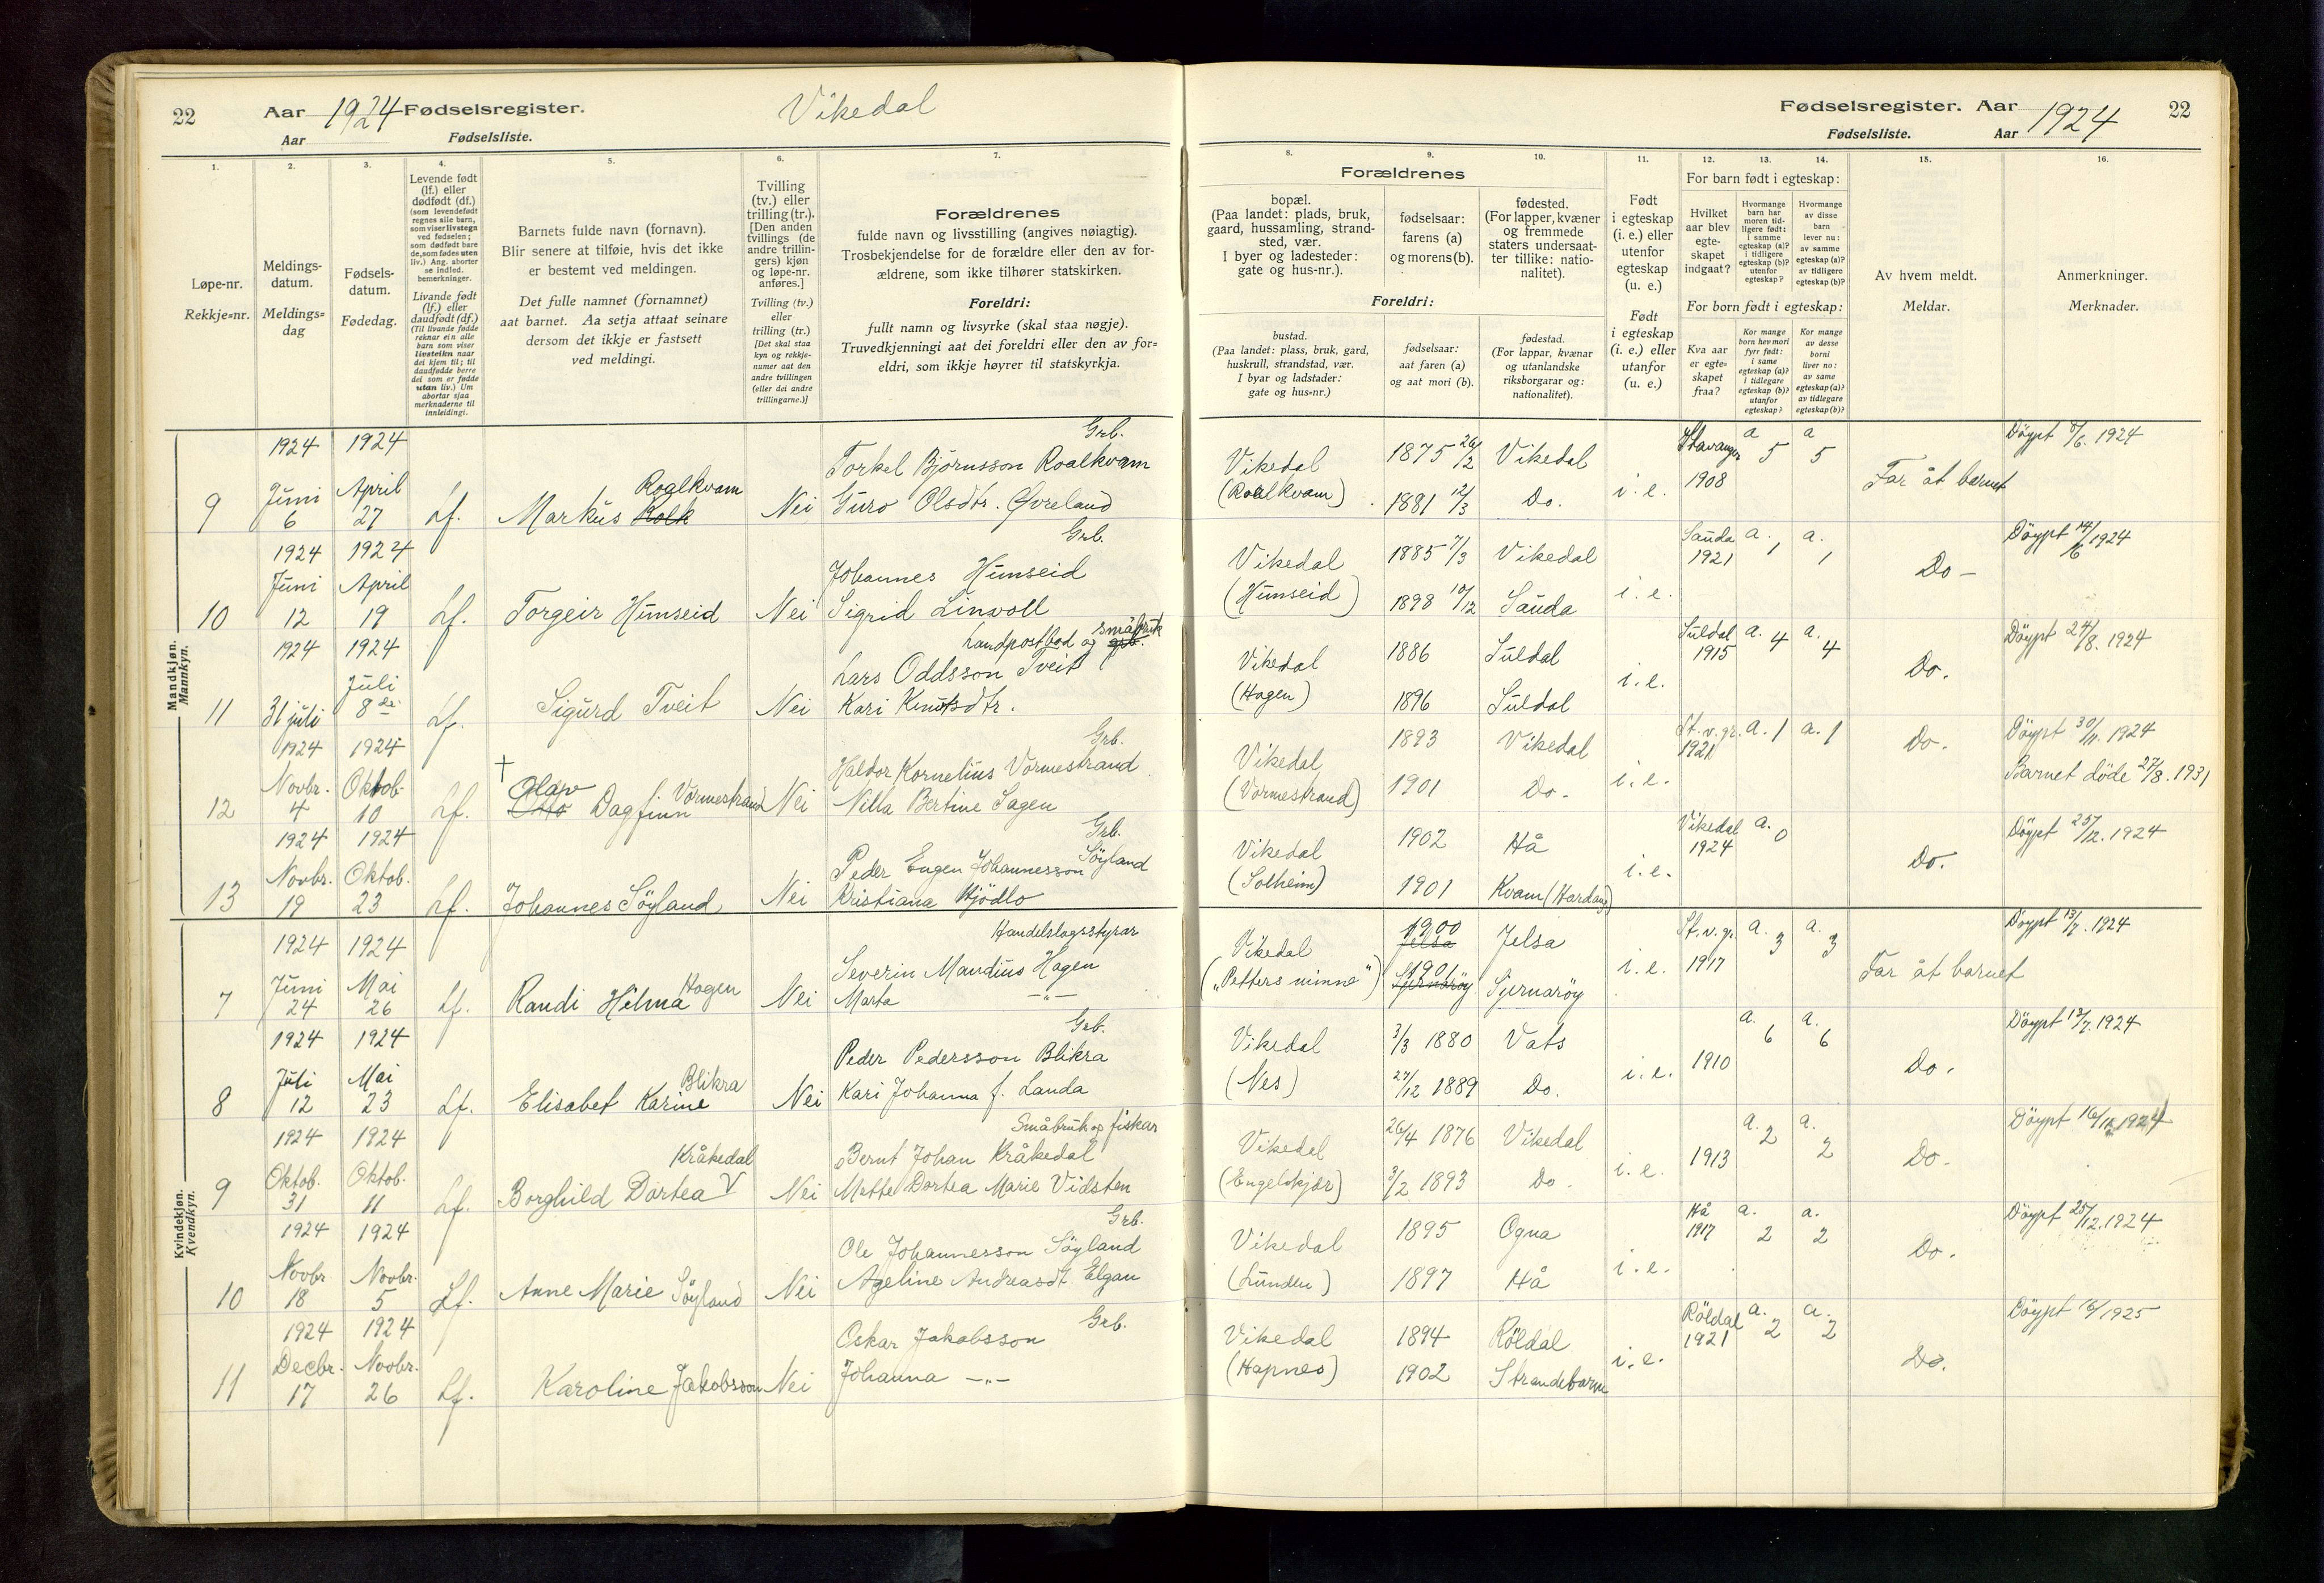 22 Aar 1924 Fødselsregister. Vikedal
Aar Fødselsliste.
1. 2. 3. 4. 5. 6. 7.
Løpe-nr.
Rekkje=nr.
Meldings-
datum.
Meldings=
dag
Fødsels-
datum.
Fødedag.
Levende født
(lf.) eller
dødfødt (df.)
(som levendefødt
regnes alle barn,
som viser livstegn
ved fødselen;
som dødfødt bare
de, som fødes uten
liv.) Ang. aborter
se indled.
bemerkninger.
Livande født
(lf.) eller
daudfødt (df.)
(Til livande fødde
reknar ein alle
barn som viser
livsteikn naar
dei kjem til; til
daudfødde berre
dei som er fødde
utan liv.) Um
abortar sjaa
merknaderne til
innleidingi.
Barnets fulde navn (fornavn).
Blir senere at tilføie, hvis det ikke
er bestemt ved meldingen.
Det fulle namnet (fornamnet)
aat barnet. Aa setja attaat seinare
dersom det ikkje er fastsett
ved meldingi.
Tvilling
(tv.) eller
trilling (tr.).
[Den anden
tvillings (de
andre trillin-
gers) kjøn
og løpe-nr.
anføres.]
Tvilling (tv.)
eller
trilling (tr.)
[Det skal staa
kyn og rekkje-
numer aat den
andre tvillingen
(eller dei andre
trillingarne.)]
Forældrenes
fulde navn og livsstilling (angives nøiagtig).
Trosbekjendelse for de forældre eller den av for-
ældrene, som ikke tilhører statskirken.
Foreldri:
fullt namn og livsyrke (skal staa nøgje).
Truvedkjenningi aat dei foreldri eller den av for=
eldri, som ikkje høyrer til statskyrkja.
Mandkjøn.
Mannkyn.
1924 1924 Grb.
Torkel Björnsson Roalkvam
Juni April Roalkvam
9 6 27 Lf. Markus Rolk Nei Guro Olsdtr. Øvreland
1924 1924 Grb.
Juni April Johannes Hùmseid
10 12 19 Lf. Torgeir Hùmseid Nei Sigrid Linvoll
1924 1924 Landpostbod og småbruk grb.
Juli Lars Oddsson Tveit
11 31 juli 8de Lf. Sigurd Tveit Nei Kari Knutsdtr.
1924 1924 Grb.
Novbr. Oktob. † Olav Haldor Kornelius Vormestrand
12 4 10 Lf. Otto Dagfinn Vormestrand Nei Nilla Bertine Sagen
1924 1924 Grb.
Novbr. Oktob. Peder Eugen Johannesson Söyland
13 19 23 Lf. Johannes Söyland Nei Kristiana Hjödlo
Kvindekjøn.
Kvendkyn.
1924 1924 Handelslagsstyrar
Juni Mai Severin Maudius Hagen
7 24 26 Lf. Randi Hilma Hagen Nei Marta —„—
1924 1924 Grb.
Juli Mai Blikra Peder Pedersson Blikra
8 12 23 Lf. Elisabet Karine Nei Kari Johanna f. Landa
1924 1924 Småbruk og fiskar
Oktob. Oktob. Kråkedal Bernt Johan Kråkedal
9 31 11 Lf. Borghild Dortea V Nei Mette Dortea Marie Vidsten
1924 1924 Grb.
Novbr Novbr. Ole Johannesson Söyland
10 18 5 Lf. Anne Marie Söyland Nei Ageline Andreasdt. Elgan
1924 1924 Grb.
Decbr. Novbr. Oskar Jakobsson
11 17 26 Lf. Karoline Jakobsson Nei Johanna —„—
Fødselsregister. Aar 1924 22
Fødselsliste. Aar
8. 9. 10. 11. 12. 13. 14. 15. 16.
Forældrenes
bopæl.
(Paa landet: plads, bruk,
gaard, hussamling, strand-
sted, vær.
I byer og ladesteder:
gate og hus-nr.).
fødselsaar:
farens (a)
og morens (b).
fødested.
(For lapper, kvæner
og fremmede
staters undersaat-
ter tillike: natio-
nalitet).
Foreldri:
bustad.
(Paa landet: plass, bruk, gard,
huskrull, strandstad, vær.
I byar og ladstader:
gate og hus=nr.)
fødselsaar:
aat faren (a)
og aat mori (b).
fødestad.
(For lappar, kvænar
og utanlandske
riksborgarar og:
nationalitet).
Født
i egteskap
(i. e.) eller
utenfor
egteskap
(u. e.)
Født
i egteskap
(i. e.) eller
utanfor
(u. e.)
For barn født i egteskap:
Hvilket
aar blev
egte-
skapet
indgaat?
Hvormange
barn har
moren tid-
ligere født:
i samme
egteskap (a)?
i tidligere
egteskap (b)?
utenfor
egteskap?
Hvormange
av disse
barn
lever nu:
av samme
egteskap (a)?
av tidligere
egteskap (b)?
For born født i egteskap:
Kva aar
er egte-
skapet
fraa?
Kor mange
born hev mori
fyrr født:
i same
egteskap (a)?
i tidlegare
egteskap (b)?
utanfor
egteskap?
Kor mange
av desse
borni
liver no:
av same
egteskap (a)?
av tidlegare
egteskap (b)?
Av hvem meldt.
Meldar.
Anmerkninger.
Merknader.
Vikedal 1875 26/2 Vikedal Stavanger a 5 a 5 Döypt 8/6. 1924
(Roalkvam) 1881 12/3 Do. i. e. 1908 Far åt barnet
Vikedal 1885 7/3 Vikedal Sauda 1921 a. 1 a. 1 Döypt 14/6 1924
(Hùmseid) 1898 10/12 Sauda i. e. Do —
Vikedal 1886 Suldal Suldal 1915 a. 4 a. 4 Döypt 24/8. 1924
(Hagen) 1896 Suldal i. e. Do.
Vikedal 1893 Vikedal St.v.gr. 1921 a. 1 a. 1 Do. Döypt 30/11. 1924
(Vormestrand) 1901 Do. i. e. Barnet döde 27/8. 1931
Vikedal 1902 Hå Vikedal 1924 a. 0 Döypt 25/12. 1924
(Solheim) 1901 Kvam (Hardang) i. e. Do.
Vikedal 1900 Jelsa Jelsa St.v.gr. a. 3 a. 3 Döypt 13/7. 1924
(„Petters minne”) 1901 Sjernaröy Sjernaröy i. e. 1917 Far åt barnet
Vikedal 3/3 1880 Vats a. 6 a. 6 Döypt 13/7. 1924
(Nes) 27/12 1889 Do. i. e. 1910 Do.
Vikedal 26/4 1876 Vikedal a. 2 a. 2 Döypt 16/11 1924
(Engelskjær) 3/2 1893 Do. i. e. 1913 Do.
Vikedal 1895 Ogna Hå 1917 a. 2 a. 2 Döypt 25/12. 1924
(Lunden) 1897 Hå i. e. Do.
Vikedal 1894 Röldal Röldal 1921 a. 2 a. 2 Döypt 1925
(Hapnes) 1902 Strandebarm i. e. Do.